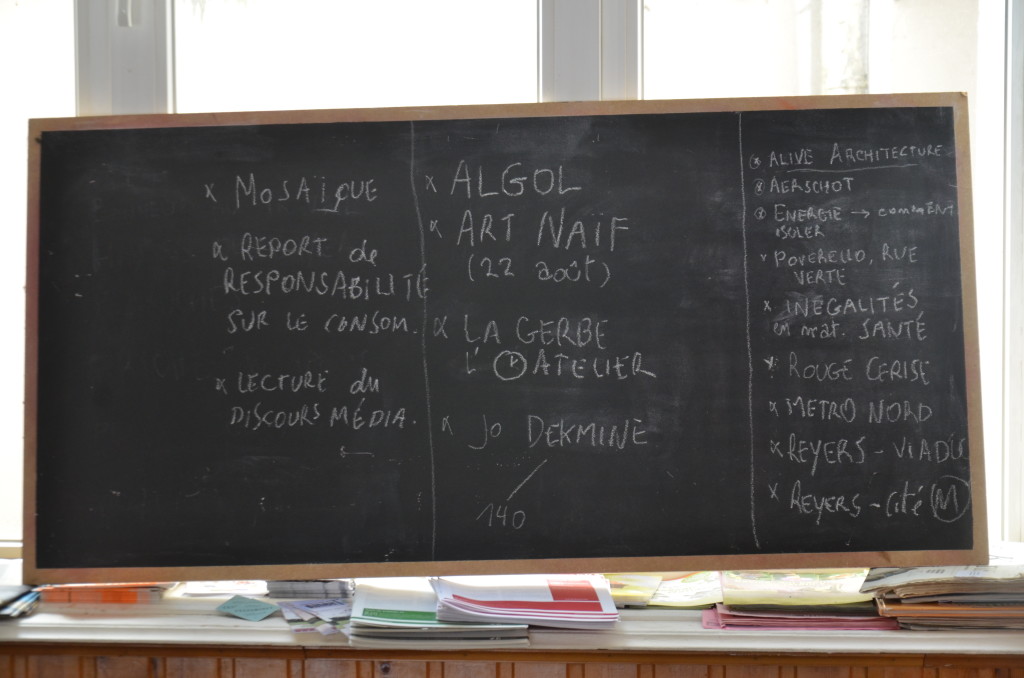 x MOSAÏQUE
x REPORT de
RESPONSABILITÉ
SUR LE CONSOM.
x LECTURE du
DISCOURS MÉDIA.
x ALGOL
x ART NAÏF
(22 août)
x LA GERBE
L' ATELIER
x JO DEKMINE
140
x ALIVE ARCHITECTURE
x AERSCHOT
x ENERGIE → comment
ISOLER
x POVERELLO, RUE
VERTE
x INÉGALITÉS
en mat. SANTÉ
x ROUGE CERISE
x METRO NORD
x REYERS - VIADUC
x REYERS - Cité M